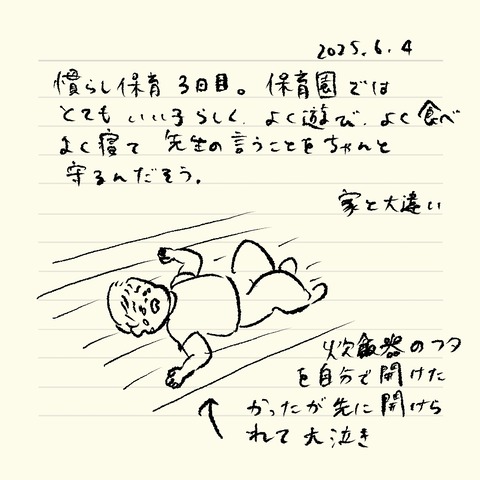 2025.6.4
慣らし保育 3日目。保育園では
とてもいい子らしく、よく遊び、よく食べ
よく寝て 先生の言うことをちゃんと
守るんだそう。
家と大違い
炊飯器のフタ
を自分で開けた
かったが先に開けら
れて大泣き